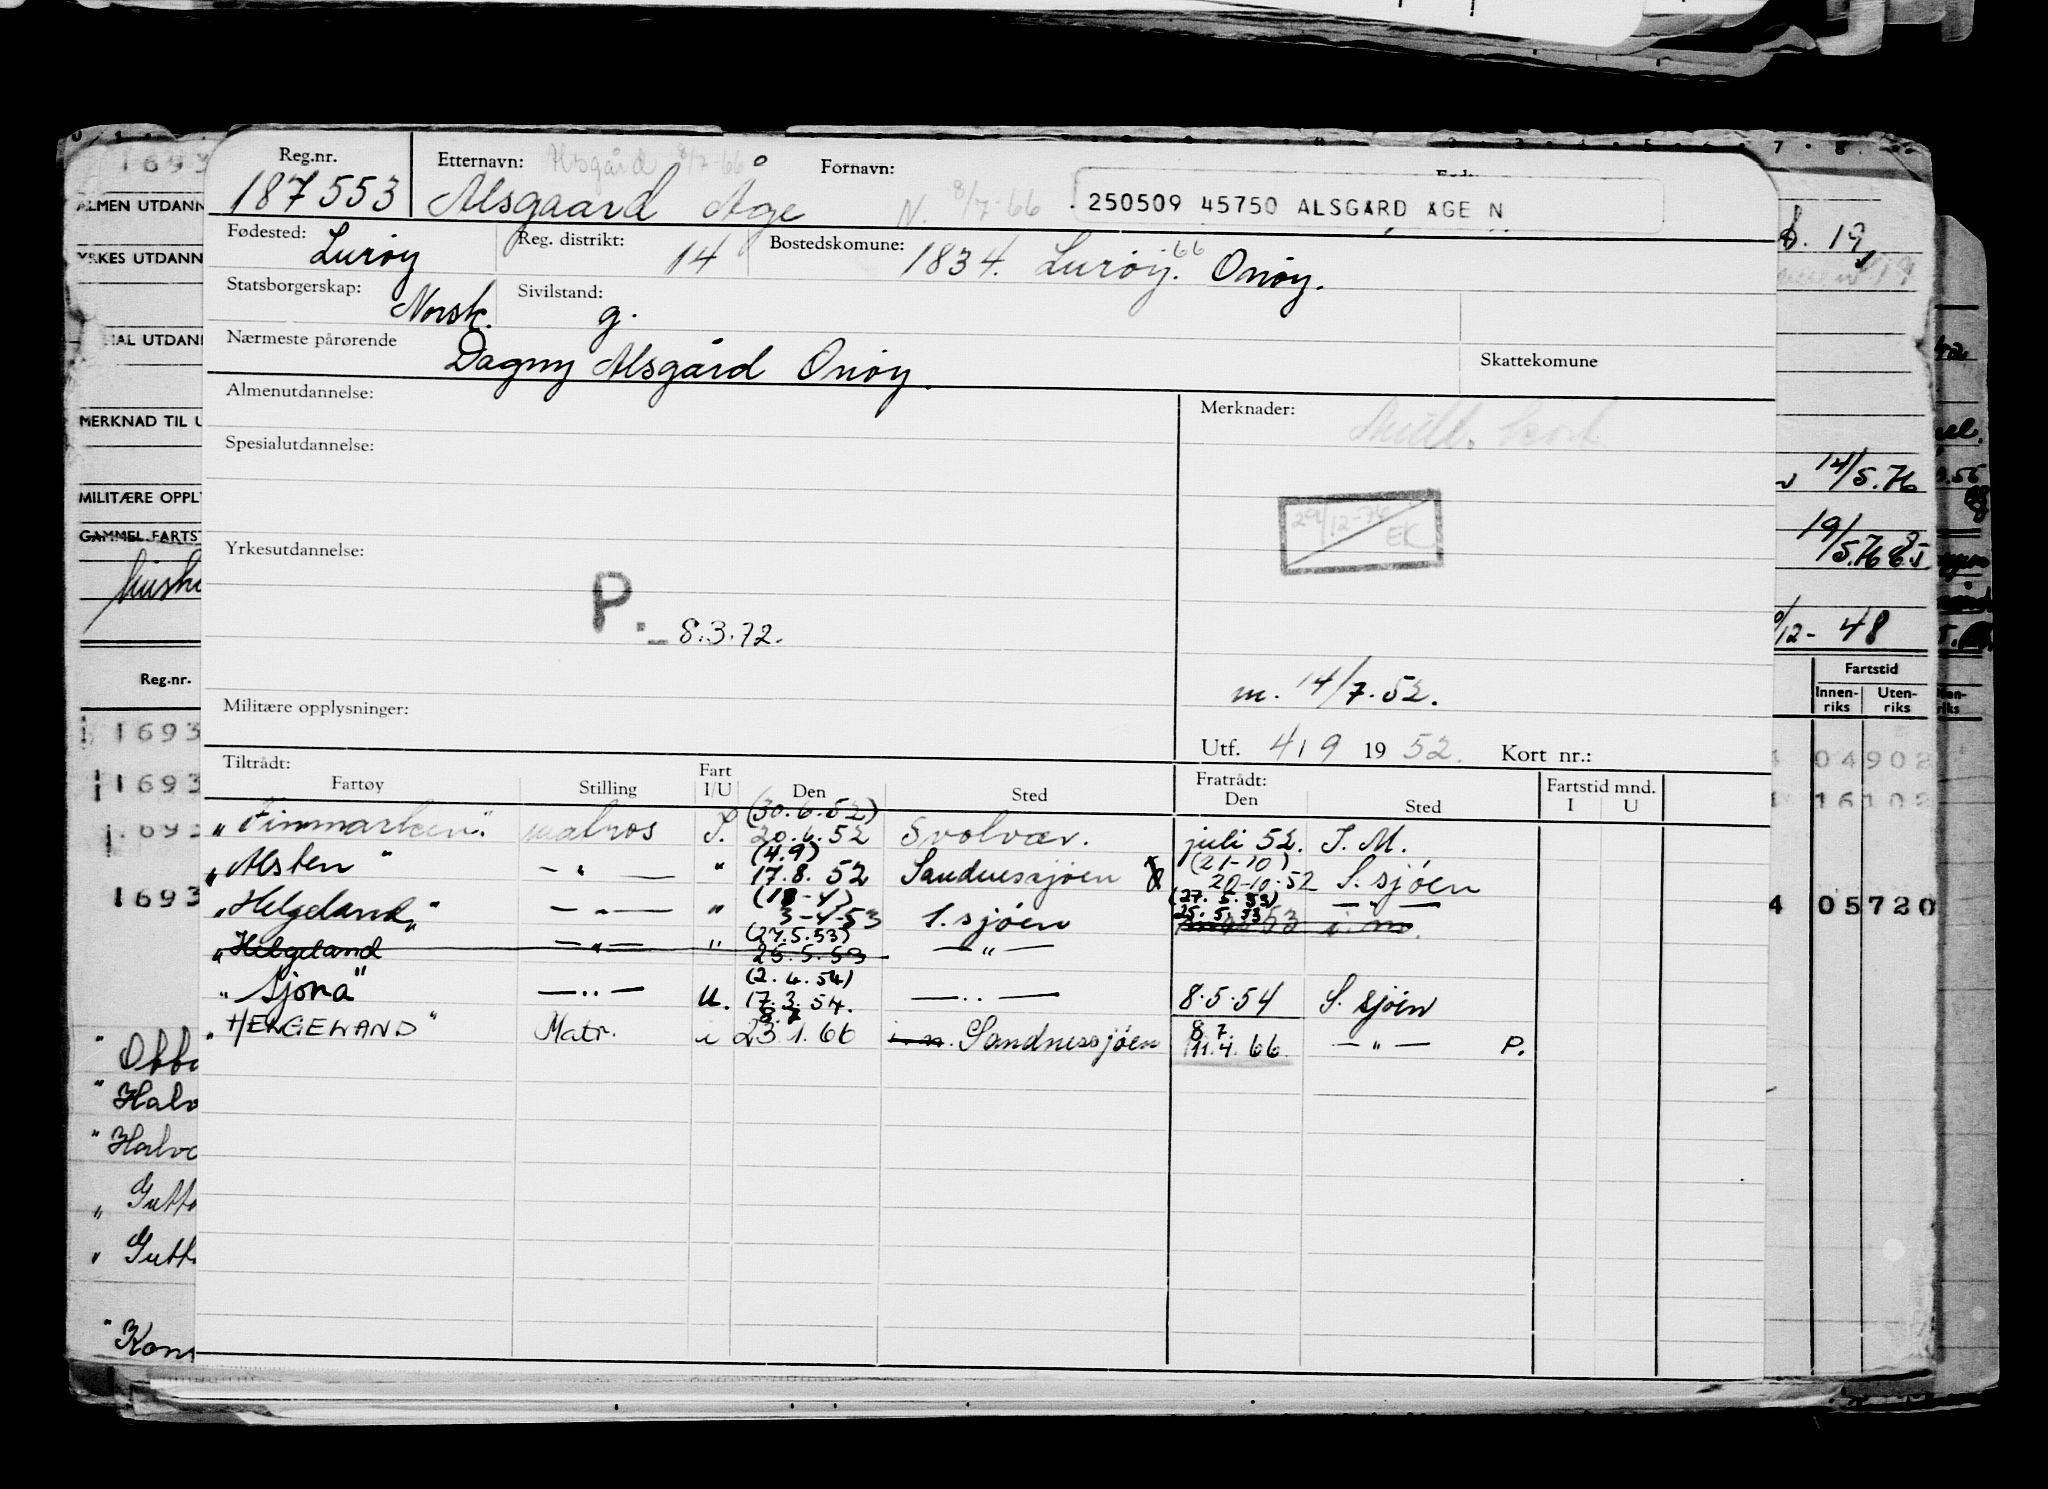 Reg.nr. Etternavn: Alsgård 8/7-66 Fornavn:
187553 Alsgaard Åge N. 8/7-66 250509 45750 ALSGÅRD ÅGE N
Fødested: Lurøy Reg. distrikt: 14 Bostedskommune: 1834. Lurøy. -66 Onøy.
Statsborgerskap: Norsk. Sivilstand: g.
Nærmeste pårørende Dagny Alsgård Onøy. Skattekomune
Almenutdannelse: Merknader:
Spesialutdannelse:
29/12-76 EK
Yrkesutdannelse:
P. - 8.3.72.
m. 14/7.52.
Militære opplysninger:
Utf. 4/9 1952. Kort nr.:
Tiltrådt: Fratrådt: Fartstid mnd.
Fartøy Stilling Fart I/U Den Sted Den Sted I U
(30.6.52)
"Finmarken". matros I. 20.6.52 Svolvær. juli 52. I. M.
(4.9) (21-10)
"Alsten" - " - " 17.8.52 Sandnessjøen 20-10-52 S. sjøen
(18-4) (27.5.53)
"Helgeland" - " - " 3-4-53 S. sjøen 25.5.53 - " -
(27.5.53)
"Helgeland - " - " 25.5.53 - " -
(2.4.54)
"Sjona" - " - U. 17.3.54. - " - 8.5.54 S. sjøen
8.7.
"HELGELAND" Matr. i 23.1.66 i.m. Sandnessjøen 11.4.66. - " - P.
1693
ALMEN UTDANN
YRKES UTDANN
AL UTDANN
MERKNAD TIL U
MILITÆRE OPPL
GAMMEL FARTST
Reg.nr.
1693
1693
1693
1693
"Halv
"Halvo
"Gutto
"Gutt
"Kons
14/5.76
19/5.76
12-48
Fartstid
Innen-riks Uten-riks
04902
16102
4 05720